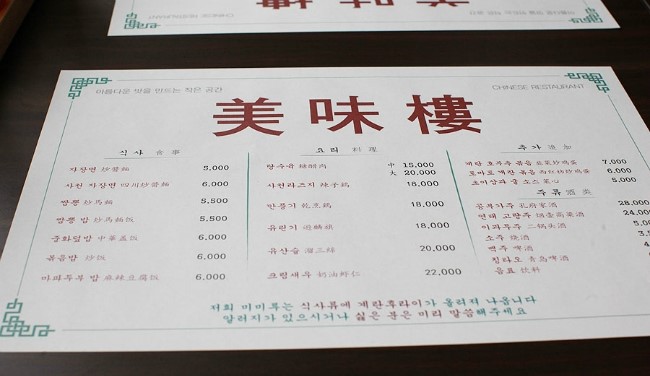 아름다운 맛을 만드는 작은 공간
CHINESE RESTAURANT
美味樓
식사 食事
자장면 炒醬麵 5,000
사천 자장면 四川炒醬麵 6,000
짬뽕 炒馬麵 5,500
짬뽕 밥 炒马麵饭 5,500
중화덮밥 中華盖饭 6,000
볶음밥 炒饭 6,000
마파두부 밥 麻辣豆腐饭 6,000
요리 料理
탕수육 糖醋肉 中 15,000
大 20,000
사천라조지 辣子鷄 18,000
깐풍기 乾烹鷄 18,000
유린기 游鱗鷄 18,000
유산슬 溜三絲 20,000
크림새우 奶油虾仁 22,000
추가 添加
계란 호부추 볶음 韭菜炒鸡蛋 7,000
토마토 계란 볶음 6,000
초이삼과 굴 소스 菜心 5,000
주류 酒类
공부가주 孔府家酒 28,000
연태 고량주 24,000
이과두주 二锅头酒
소주 烧酒
맥주 啤酒
칭타오 青岛啤酒
음료 饮料
저희 미미루는 식사류에 계란후라이가 올려져 나옵니다
알러지가 있으시거나 싫은 분은 미리 말씀해주세요